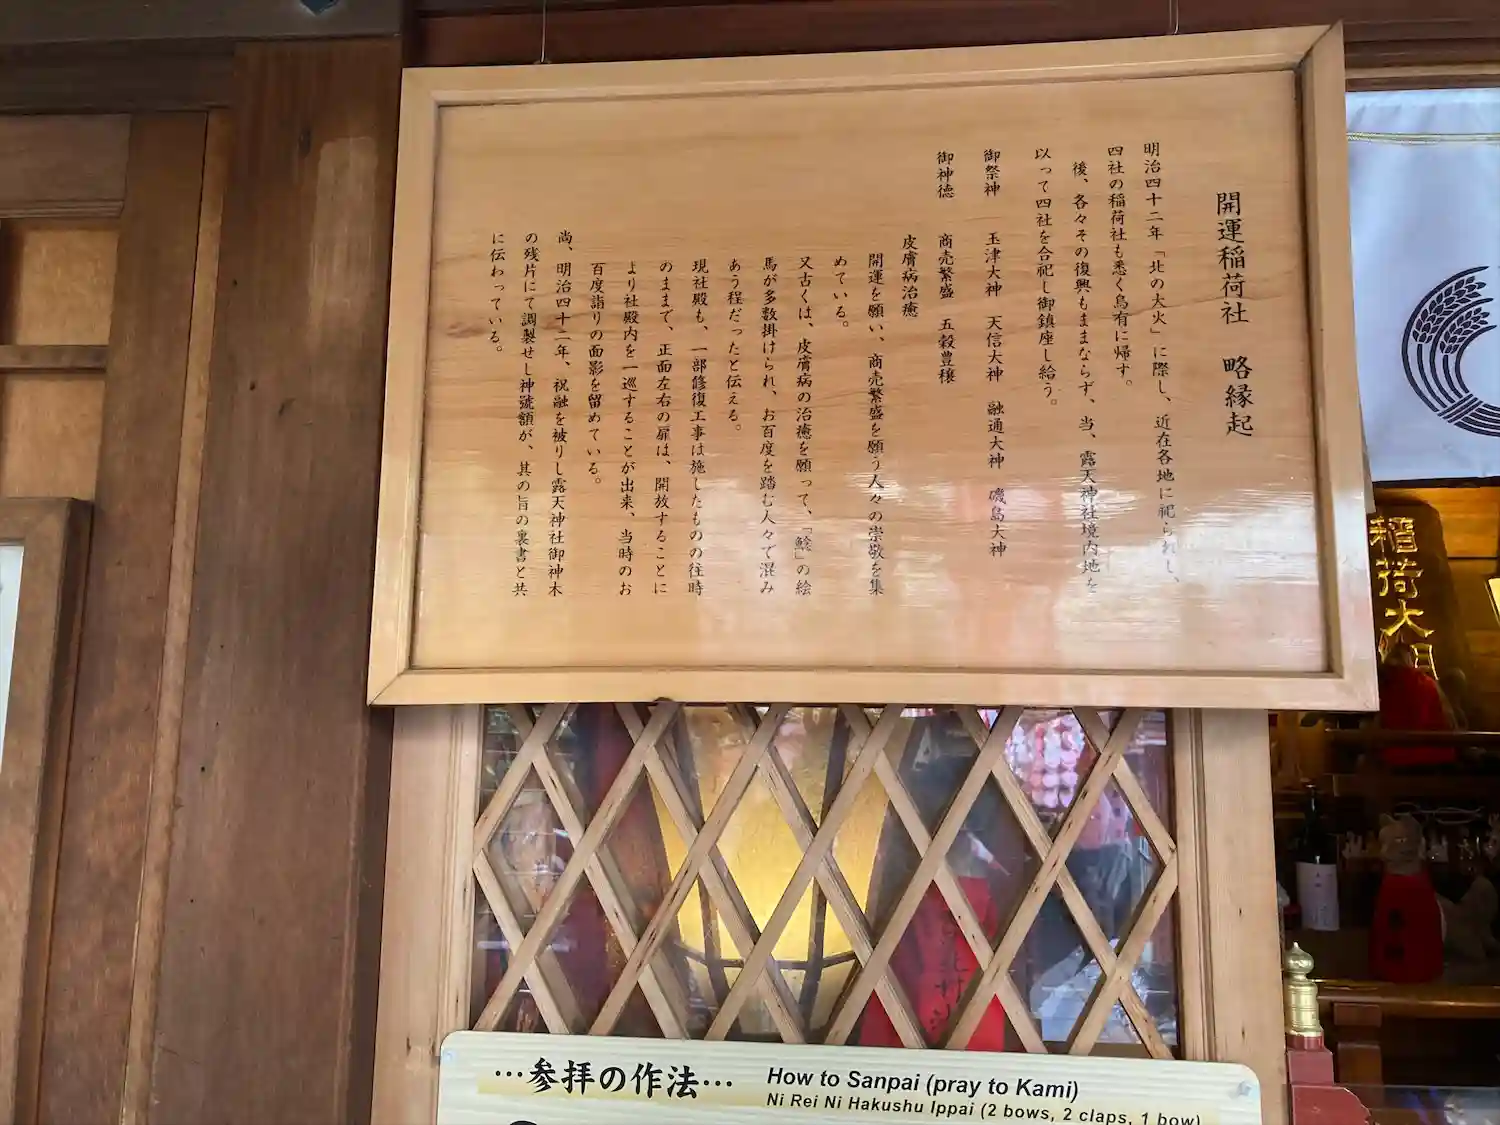 開運稲荷社　略縁起
明治四十二年「北の大火」に際し、近在各地に祀られし、
四社の稲荷社も悉く烏有に帰す。
後、各々その復興もままならず、当、露天神社境内地を
以って四社を合祀し御鎮座し給う。
御祭神　玉津大神　天信大神　融通大神　磯島大神
御神徳　商売繁盛　五穀豊穣
皮膚病治癒
開運を願い、商売繁盛を願う人々の崇敬を集
めている。
又古くは、皮膚病の治癒を願って、「鯰」の絵
馬が多数掛けられ、お百度を踏む人々で混み
あう程だったと伝える。
現社殿も、一部修復工事は施したものの往時
のままで、正面左右の扉は、開放することに
より社殿内を一巡することが出来、当時のお
百度詣りの面影を留めている。
尚、明治四十二年、祝融を被りし露天神社御神木
の残片にて調製せし神號額が、其の旨の裏書と共
に伝わっている。
稲荷大
…参拝の作法…
How to Sanpai (pray to Kami)
Ni Rei Ni Hakushu Ippai (2 bows, 2 claps, 1 bow)